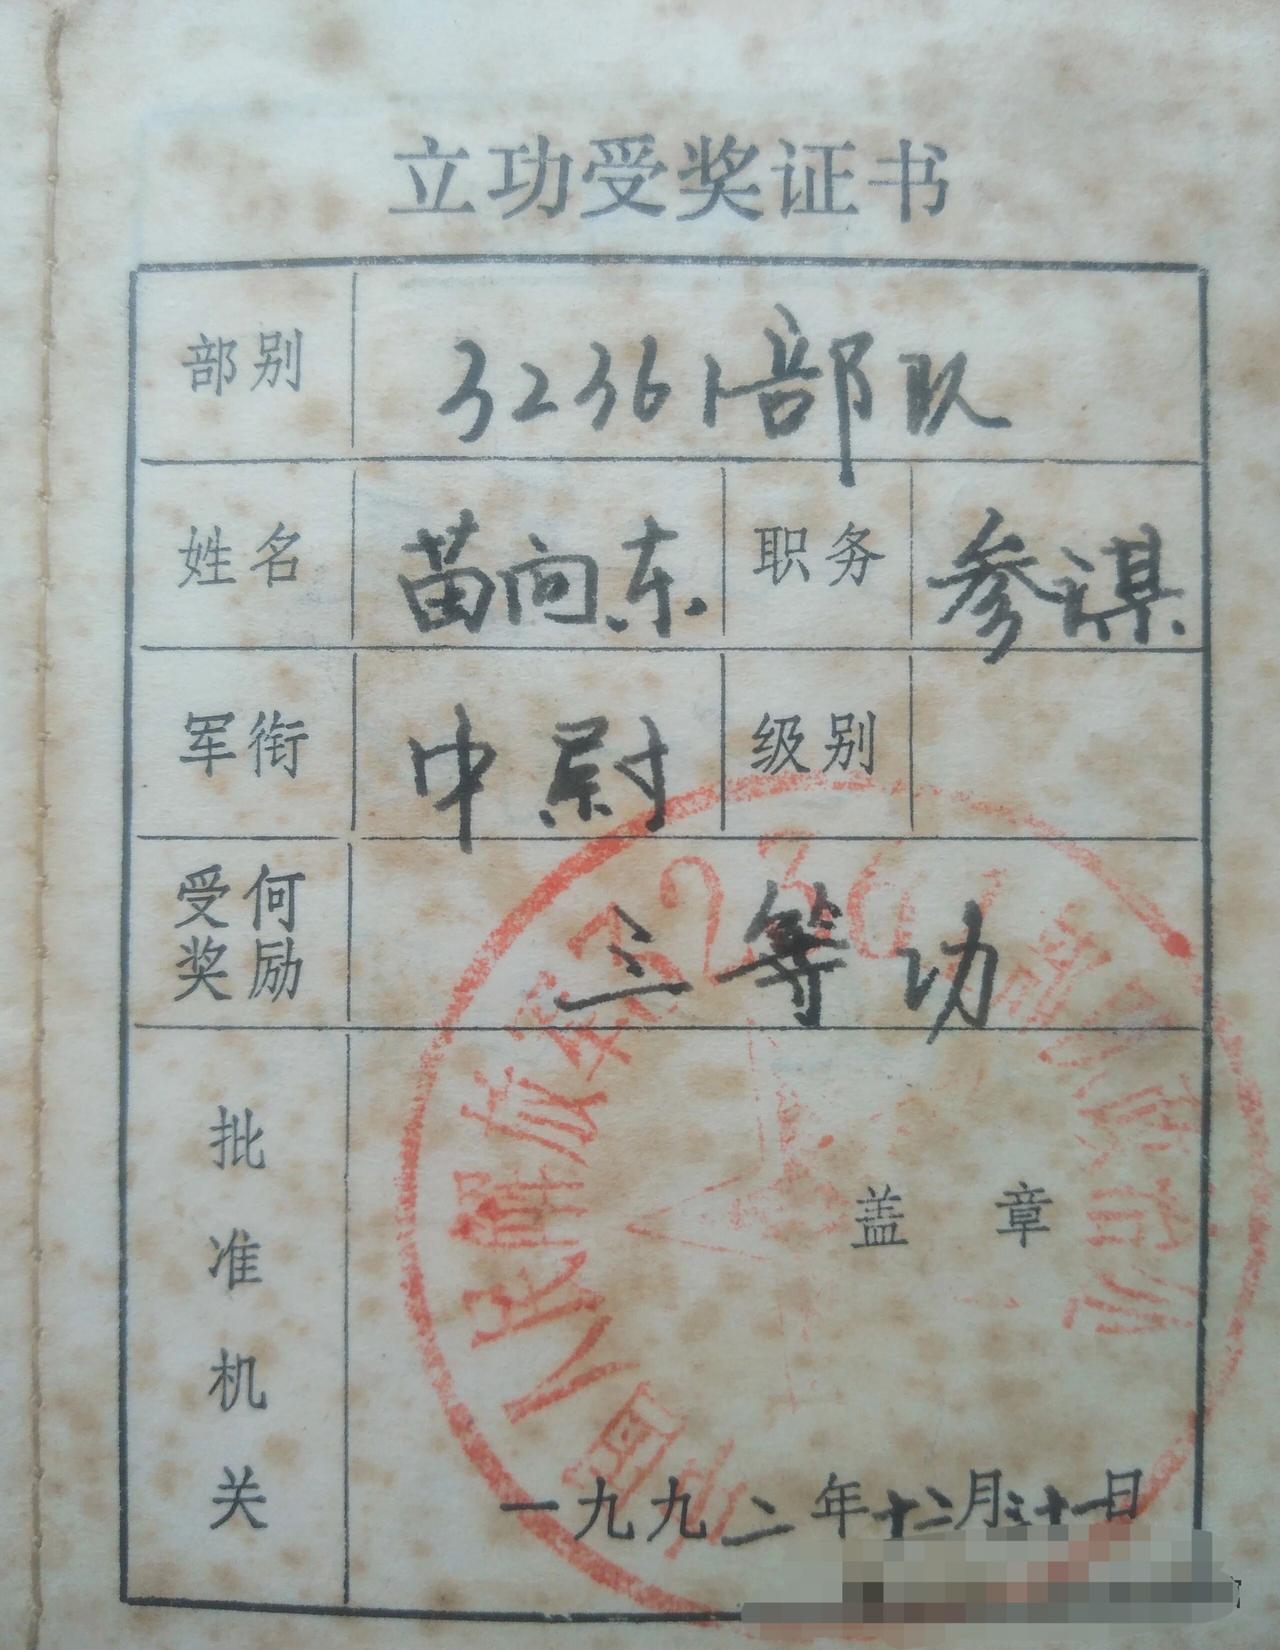 立功受奖证书
部别 32361部队
姓名 苗向东 职务 参谋
军衔 中尉 级别
受何奖励 三等功
批准机关
盖章
一九九二年十二月三十一日
中国人民解放军32361部队